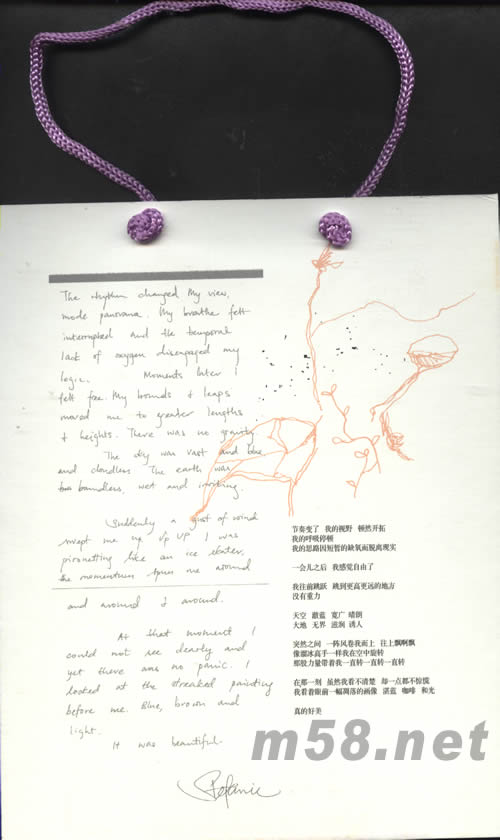 The rhythm changed my view,
mode panorama. My breathe felt
interrupted and the temporal
lack of oxygen disengaged my
logic. Moments later I
felt free. My bounds & leaps
moved me to greater lengths
& heights. There was no gravity.
The sky was vast and blue
and cloudless. The earth was
boundless, wet and inviting.
Suddenly a gust of wind
swept me up up UP I was
pirouetting like an ice skater.
the momentum spun me around
and around & around.
At that moment I
could not see clearly and
yet there was no panic. I
looked at the streaked painting
before me. Blue, brown and
light.
It was beautiful.
Stefanie
节奏变了 我的视野 顿然开拓
我的呼吸停顿
我的思路因短暂的缺氧而脱离现实
一会儿之后 我感觉自由了
我往前跳跃 跳到更高更远的地方
没有重力
天空 湛蓝 宽广 晴朗
大地 无界 滋润 诱人
突然之间 一阵风卷我而上 往上飘啊飘
像溜冰高手一样我在空中旋转
那股力量带着我一直转一直转一直转
在那一刻 虽然我看不清楚 却一点都不惊慌
我看着眼前一幅凋落的画像 湛蓝 咖啡 和光
真的好美
m58.net